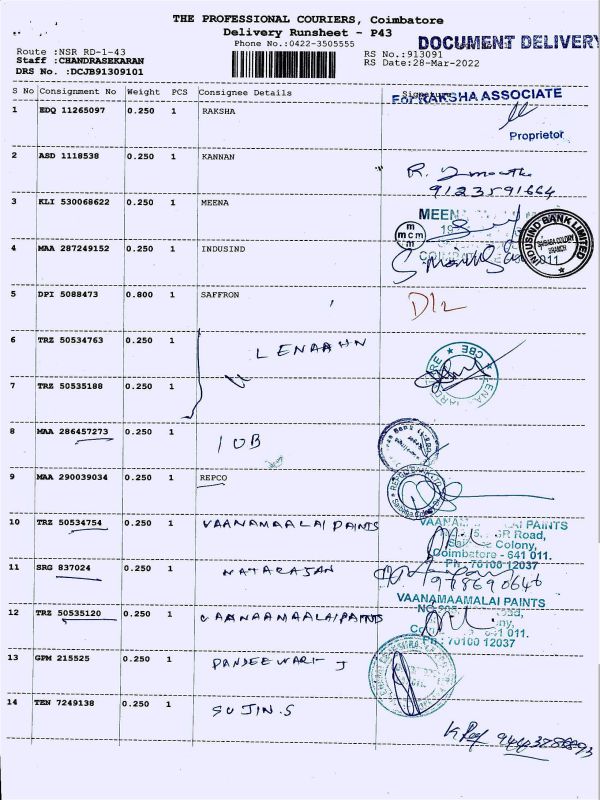 THE PROFESSIONAL COURIERS, Coimbatore
Delivery Runsheet - P43
Phone No.:0422-3505555
DOCUMENT DELIVERY
Route :NSR RD-1-43
RS No.:913091
Staff :CHANDRASEKARAN
RS Date:28-Mar-2022
DRS No. :DCJB91309101
S No Consignment No Weight PCS Consignee Details Signature
For RAKSHA ASSOCIATE
1 EDQ 11265097 0.250 1 RAKSHA
Proprietor
2 ASD 1118538 0.250 1 KANNAN
R.
9123591664
3 KLI 530068622 0.250 1 MEENA
MEEN
mcm
INDUSIND BANK LIMITED
SAIBABA COLONY BRANCH
4 MAA 287249152 0.250 1 INDUSIND
011
5 DPI 5088473 0.800 1 SAFFRON
D/L
6 TRZ 50534763 0.250 1
LENAAHN
CBE
7 TRZ 50535188 0.250 1
8 MAA 286457273 0.250 1 IOB
9 MAA 290039034 0.250 1 REPCO
10 TRZ 50534754 0.250 1 VAANAMAALAI PAINTS
VAANAM ALAI PAINTS
SR Road,
Colony,
Coimbatore - 641 011.
Ph : 70100 12037
11 SRG 837024 0.250 1 NATARAJAN
VAANAMAAMALAI PAINTS
12 TRZ 50535120 0.250 1 VAANAAMAALAI PAINTS
011.
Ph : 70100 12037
13 GPM 215525 0.250 1 PANDEEWARI J
14 TEN 7249138 0.250 1 SUJIN.S